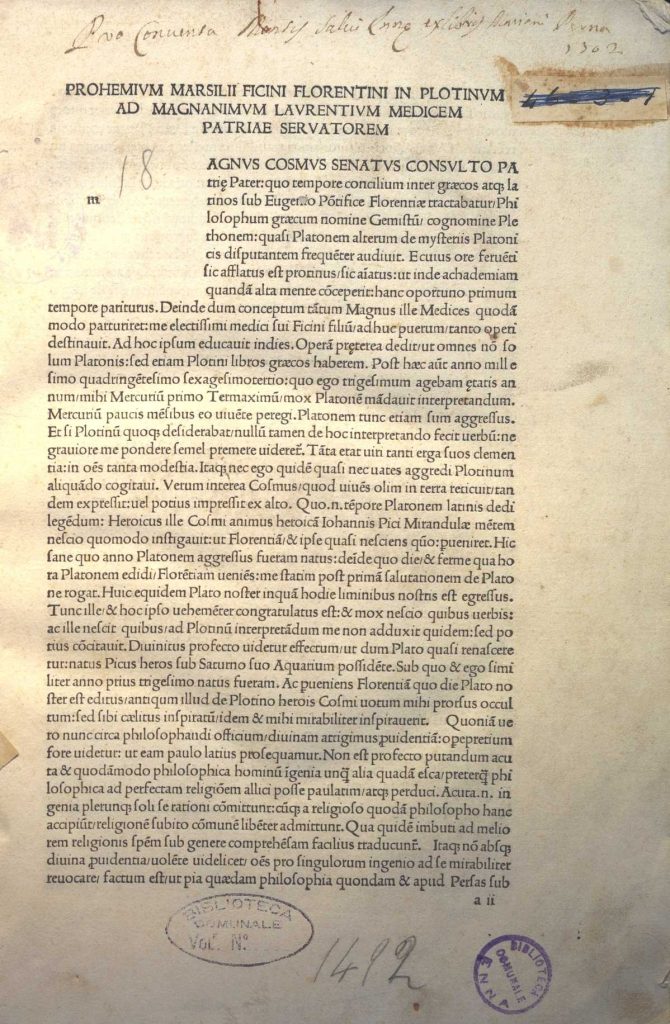 1502
PROHEMIVM MARSILII FICINI FLORENTINI IN PLOTINVM
AD MAGNANIMVM LAVRENTIVM MEDICEM
PATRIAE SERVATOREM
18
m
AGNVS COSMVS SENATVS CONSVLTO PA
trię Pater: quo tempore concilium inter græcos atq; la
tinos sub Eugenio Põtifice Florentiæ tractabatur/Phi
losophum græcum nomine Gemistũ/cognomine Ple
thonem: quasi Platonem alterum de mysteriis Platoni
cis disputantem frequẽter audiuit. E cuius ore feruẽti
sic afflatus est protinus/sic aĩatus: ut inde achademiam
quandã alta mente cõceperit: hanc oportuno primum
tempore pariturus. Deinde dum conceptum tãtum Magnus ille Medices quodã
modo parturiret: me electissimi medici sui Ficini filiũ/adhuc puerum/tanto operi
destinauit. Ad hoc ipsum educauit indies. Operã pręterea dedit/ut omnes nõ so
lum Platonis: sed etiam Plotini libros græcos haberem. Post hæc aũt anno mille
simo quadringẽtesimo sexagesimotertio: quo ego trigesimum agebam ętatis an
num/mihi Mercuriũ primo Termaximũ/mox Platonẽ mãdauit interpretandum.
Mercuriũ paucis mẽsibus eo uiuẽte peregi. Platonem tunc etiam sum aggressus.
Et si Plotinũ quoq; desiderabat/nullũ tamen de hoc interpretando fecit uerbũ: ne
grauiore me pondere semel premere uideret̃. Tãta erat uiri tanti erga suos clemen
tia: in oẽs tanta modestia. Itaq; nec ego quidẽ quasi nec uates aggredi Plotinum
aliquãdo cogitaui. Verum interea Cosmus/quod uiuẽs olim in terra reticuit/tan
dem expressit: uel potius impressit ex alto. Quo.n.tẽpore Platonem latinis dedi
legẽdum: Heroicus ille Cosmi animus heroicã Iohannis Pici Mirandulæ mẽtem
nescio quomodo instigauit: ut Florentiã/& ipse quasi nesciens quõ: ꝑueniret. Hic
sane quo anno Platonem aggressus fueram natus: deĩde quo die/& ferme qua ho
ra Platonem edidi/Florẽtiam ueniẽs: me statim post primã salutationem de Plato
ne rogat. Huic equidem Plato noster inquã hodie liminibus nostris est egressus.
Tunc ille/& hoc ipso uehemẽter congratulatus est: & mox nescio quibus uerbis:
ac ille nescit quibus/ad Plotinũ interpretãdum me non adduxit quidem: sed po
tius cõcitauit. Diuinitus profecto uidetur effectum/ut dum Plato quasi renascere
tur: natus Picus heros sub Saturno suo Aquarium possidẽte. Sub quo & ego simi
liter anno prius trigesimo natus fueram. Ac ꝑueniens Florentiã quo die Plato no
ster est editus/antiquum illud de Plotino herois Cosmi uotum mihi prorsus occul
tum: sed sibi cælitus inspiratũ/idem & mihi mirabiliter inspirauerit. Quoniã ue
ro nunc circa philosophandi officium/diuinam attigimus ꝓuidentiã: operepretium
fore uidetur: ut eam paulo latius prosequamur. Non est profecto putandum acu
ta & quodãmodo philosophica hominũ ĩgenia unq̃ alia quadã esca/preterq̃ phi
losophica ad perfectam religiõem allici posse paulatim/atq; perduci. Acuta.n.in
genia plerunq; soli se rationi cõmittunt: cũq; a religioso quodã philosopho hanc
accipiũt/religionẽ subito cõmunẽ libẽter admittunt. Qua quidẽ imbuti ad melio
rem religionis spẽm sub genere comprehẽsam facilius traducunt̃. Itaq; nõ absq;
diuina ꝓuidentia/uolẽte uidelicet/oẽs pro singulorum ingenio ad se mirabiliter
reuocare/factum est/ut pia quædam philosophia quondam & apud Persas sub
a ii
BIBLIOTECA
COMUNALE
Vol. N°
1492
BIBLIOTECA
COMUNALE
ENNA